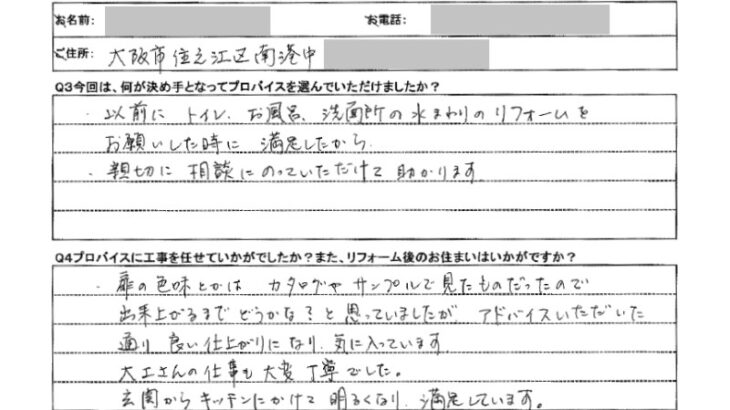 お名前: お電話:
ご住所: 大阪市住之江区南港中
Q3今回は、何が決め手となってプロバイスを選んでいただけましたか?
・以前に トイレ、お風呂、洗面所の水まわりのリフォームを
お願いした時に 満足したから
・親切に 相談にのっていただけて 助かります
Q4プロバイスに工事を任せていかがでしたか?また、リフォーム後のお住まいはいかがですか?
・扉の色味とかは カタログやサンプルで見たものだったので
出来上がるまで どうかな?と思っていましたが アドバイスいただいた
通り 良い仕上がりになり、気に入っています
大工さんの仕事も 大変 丁寧でした。
玄関から キッチンにかけて 明るくなり、満足しています。